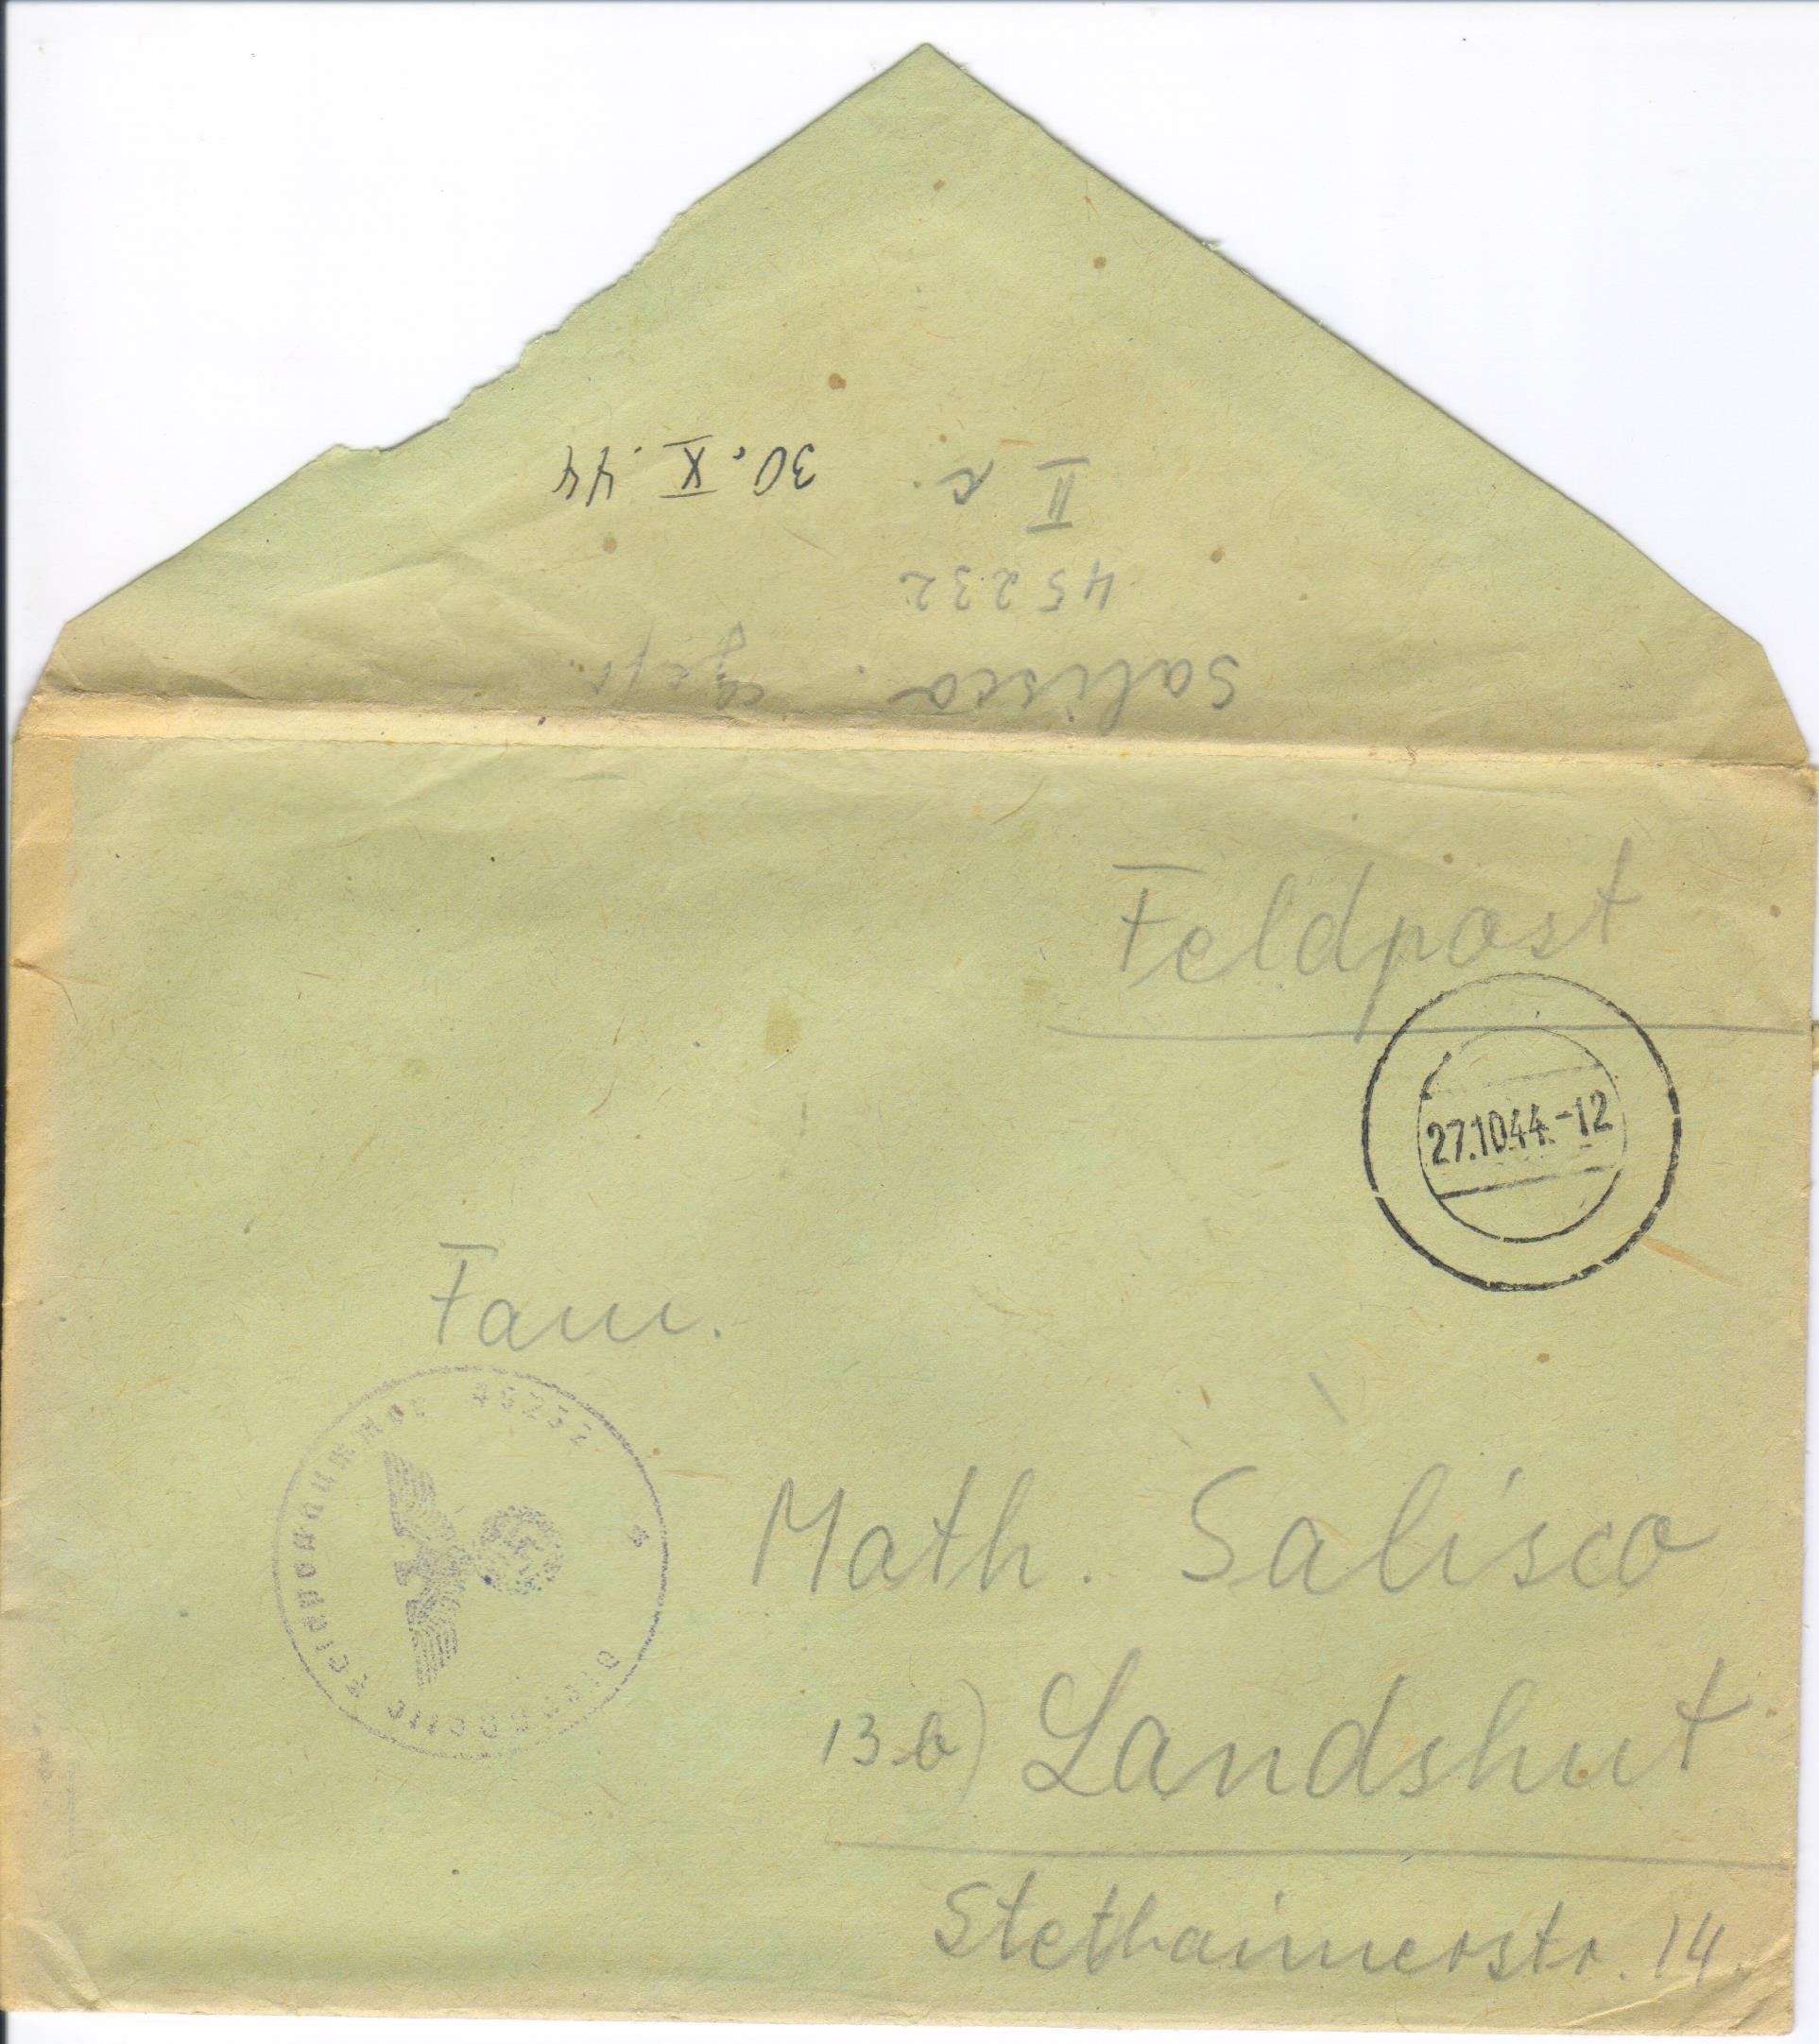 II c. 30. X. 44
45232
Salisco Gefr.
Feldpost
27.10.44.-12
Fam.
Dienststelle Feldpostnummer 45232 *
Math. Salisco
13b) Landshut
Stethaimerstr. 14.